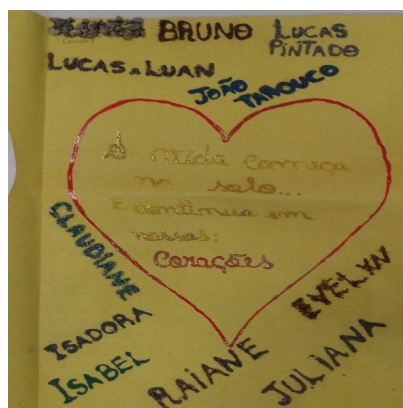 BRUNO LUCAS PINTADO
LUCAS A LUAN
JOÃO TAROUCO
A vida começa
no solo...
E continua em
nossos:
Corações
CLAUDIANE
EVELYN
ISADORA
ISABEL
RAIANE
JULIANA